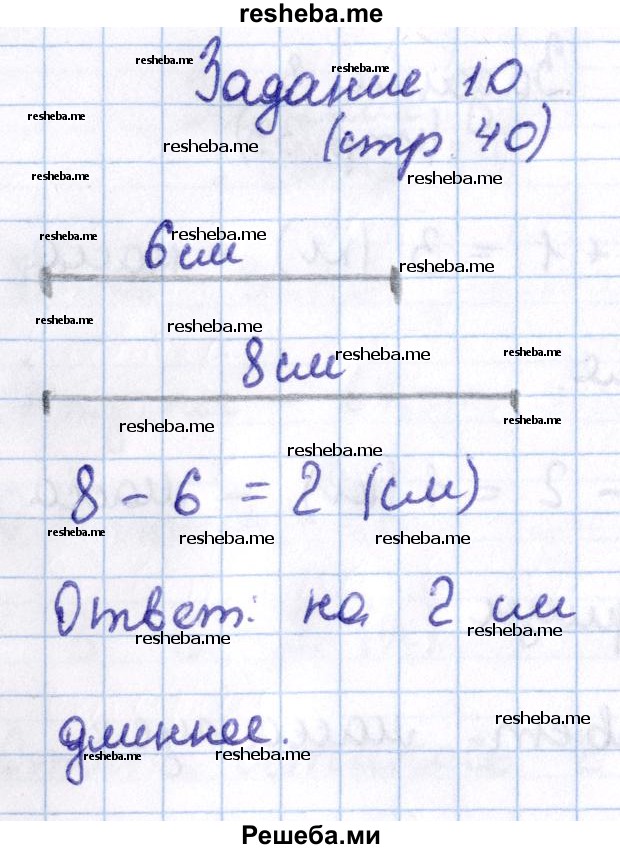 resheba.me
resheba.me resheba.me
Задание 10
resheba.me
resheba.me
(стр. 40)
resheba.me resheba.me
resheba.me resheba.me
6 см
resheba.me
resheba.me resheba.me
8 см
resheba.me resheba.me
resheba.me resheba.me
resheba.me
8 - 6 = 2 (см)
resheba.me resheba.me resheba.me
Ответ: на 2 см
resheba.me resheba.me
длиннее.
resheba.me
resheba.me resheba.me
Решеба.ми